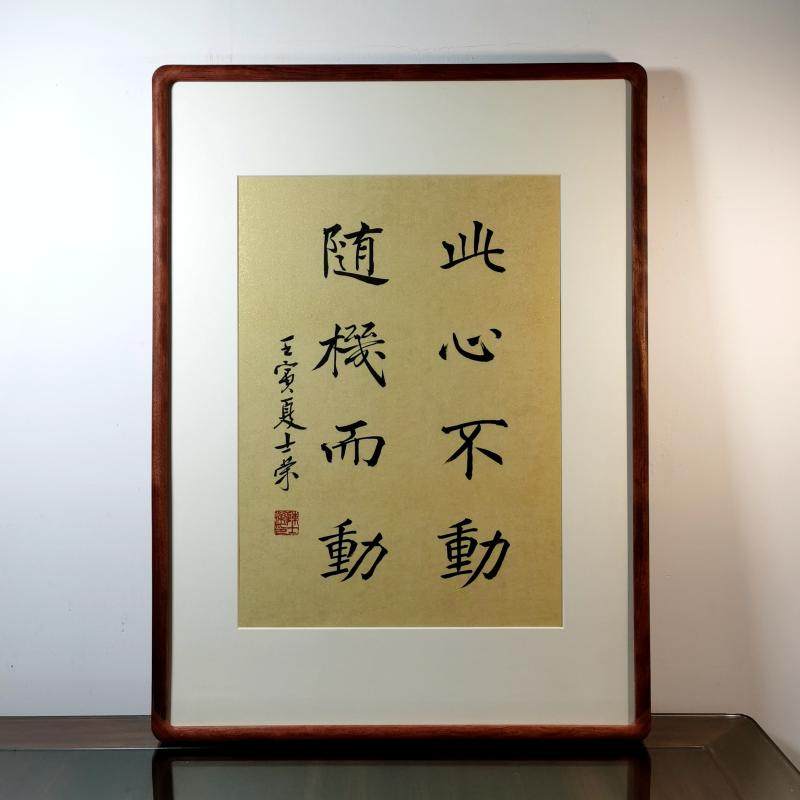 此心不動
随機而動
壬寅夏士荣